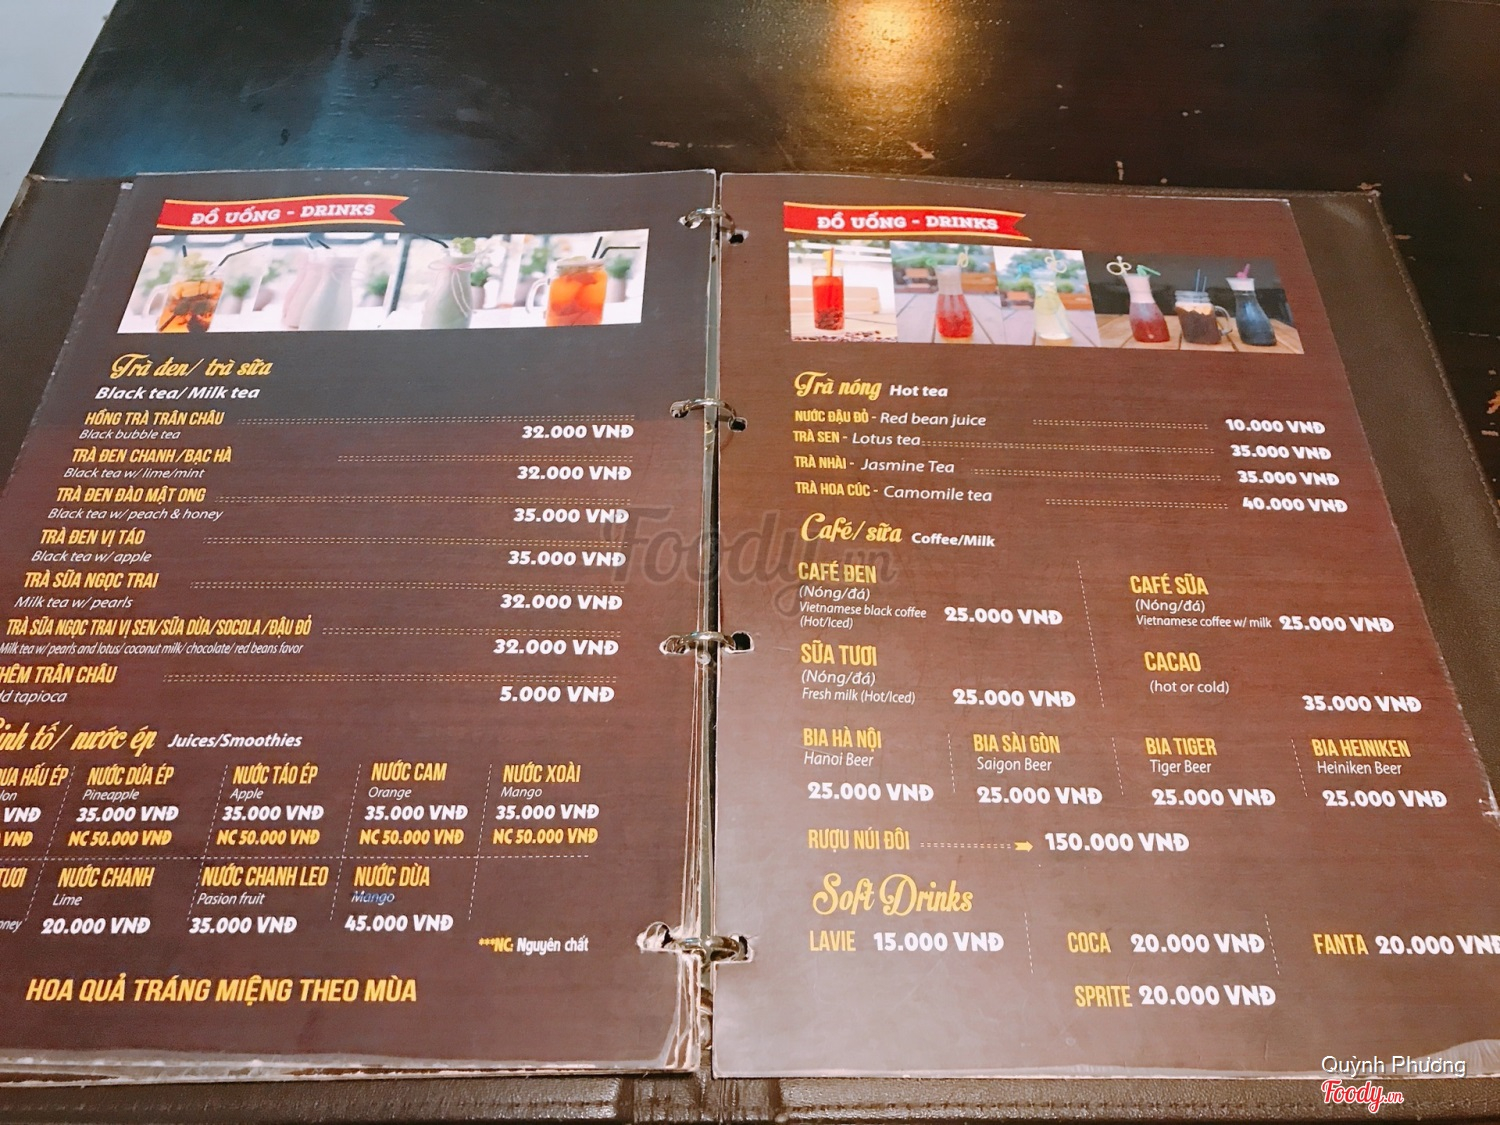 ĐỒ UỐNG - DRINKS
Trà đen/ trà sữa
Black tea/ Milk tea
HỒNG TRÀ TRÂN CHÂU
Black bubble tea 32.000 VNĐ
TRÀ ĐEN CHANH/BẠC HÀ
Black tea w/ lime/mint 32.000 VNĐ
TRÀ ĐEN ĐÀO MẬT ONG
Black tea w/ peach & honey 35.000 VNĐ
TRÀ ĐEN VỊ TÁO
Black tea w/ apple 35.000 VNĐ
TRÀ SỮA NGỌC TRAI
Milk tea w/ pearls 32.000 VNĐ
TRÀ SỮA NGỌC TRAI VỊ SEN/SỮA DỪA/SOCOLA/ĐẬU ĐỎ
Milk tea w/ pearls and lotus/ coconut milk/ chocolate/ red beans favor 32.000 VNĐ
HÊM TRÂN CHÂU
dd tapioca 5.000 VNĐ
inh tố/ nước ép Juices/Smoothies
ƯA HẤU ÉP NƯỚC DỨA ÉP NƯỚC TÁO ÉP NƯỚC CAM NƯỚC XOÀI
lon Pineapple Apple Orange Mango
VNĐ 35.000 VNĐ 35.000 VNĐ 35.000 VNĐ 35.000 VNĐ
VNĐ NC 50.000 VNĐ NC 50.000 VNĐ NC 50.000 VNĐ NC 50.000 VNĐ
TƯƠI NƯỚC CHANH NƯỚC CHANH LEO NƯỚC DỪA
Lime Pasion fruit Mango
oney 20.000 VNĐ 35.000 VNĐ 45.000 VNĐ
***NC: Nguyên chất
HOA QUẢ TRÁNG MIỆNG THEO MÙA
ĐỒ UỐNG - DRINKS
Trà nóng Hot tea
NƯỚC ĐẬU ĐỎ - Red bean juice 10.000 VNĐ
TRÀ SEN - Lotus tea 35.000 VNĐ
TRÀ NHÀI - Jasmine Tea 35.000 VNĐ
TRÀ HOA CÚC - Camomile tea 40.000 VNĐ
Café/ sữa Coffee/Milk
CAFÉ ĐEN CAFÉ SỮA
(Nóng/đá) (Nóng/đá)
Vietnamese black coffee (Hot/Iced) 25.000 VNĐ Vietnamese coffee w/ milk 25.000 VNĐ
SỮA TƯƠI CACAO
(Nóng/đá) (hot or cold)
Fresh milk (Hot/Iced) 25.000 VNĐ 35.000 VNĐ
BIA HÀ NỘI BIA SÀI GÒN BIA TIGER BIA HEINIKEN
Hanoi Beer Saigon Beer Tiger Beer Heiniken Beer
25.000 VNĐ 25.000 VNĐ 25.000 VNĐ 25.000 VNĐ
RƯỢU NÚI ĐÔI 150.000 VNĐ
Soft Drinks
LAVIE 15.000 VNĐ COCA 20.000 VNĐ FANTA 20.000 VNĐ
SPRITE 20.000 VNĐ
Foody.vn
Quỳnh Phương
Foody.vn